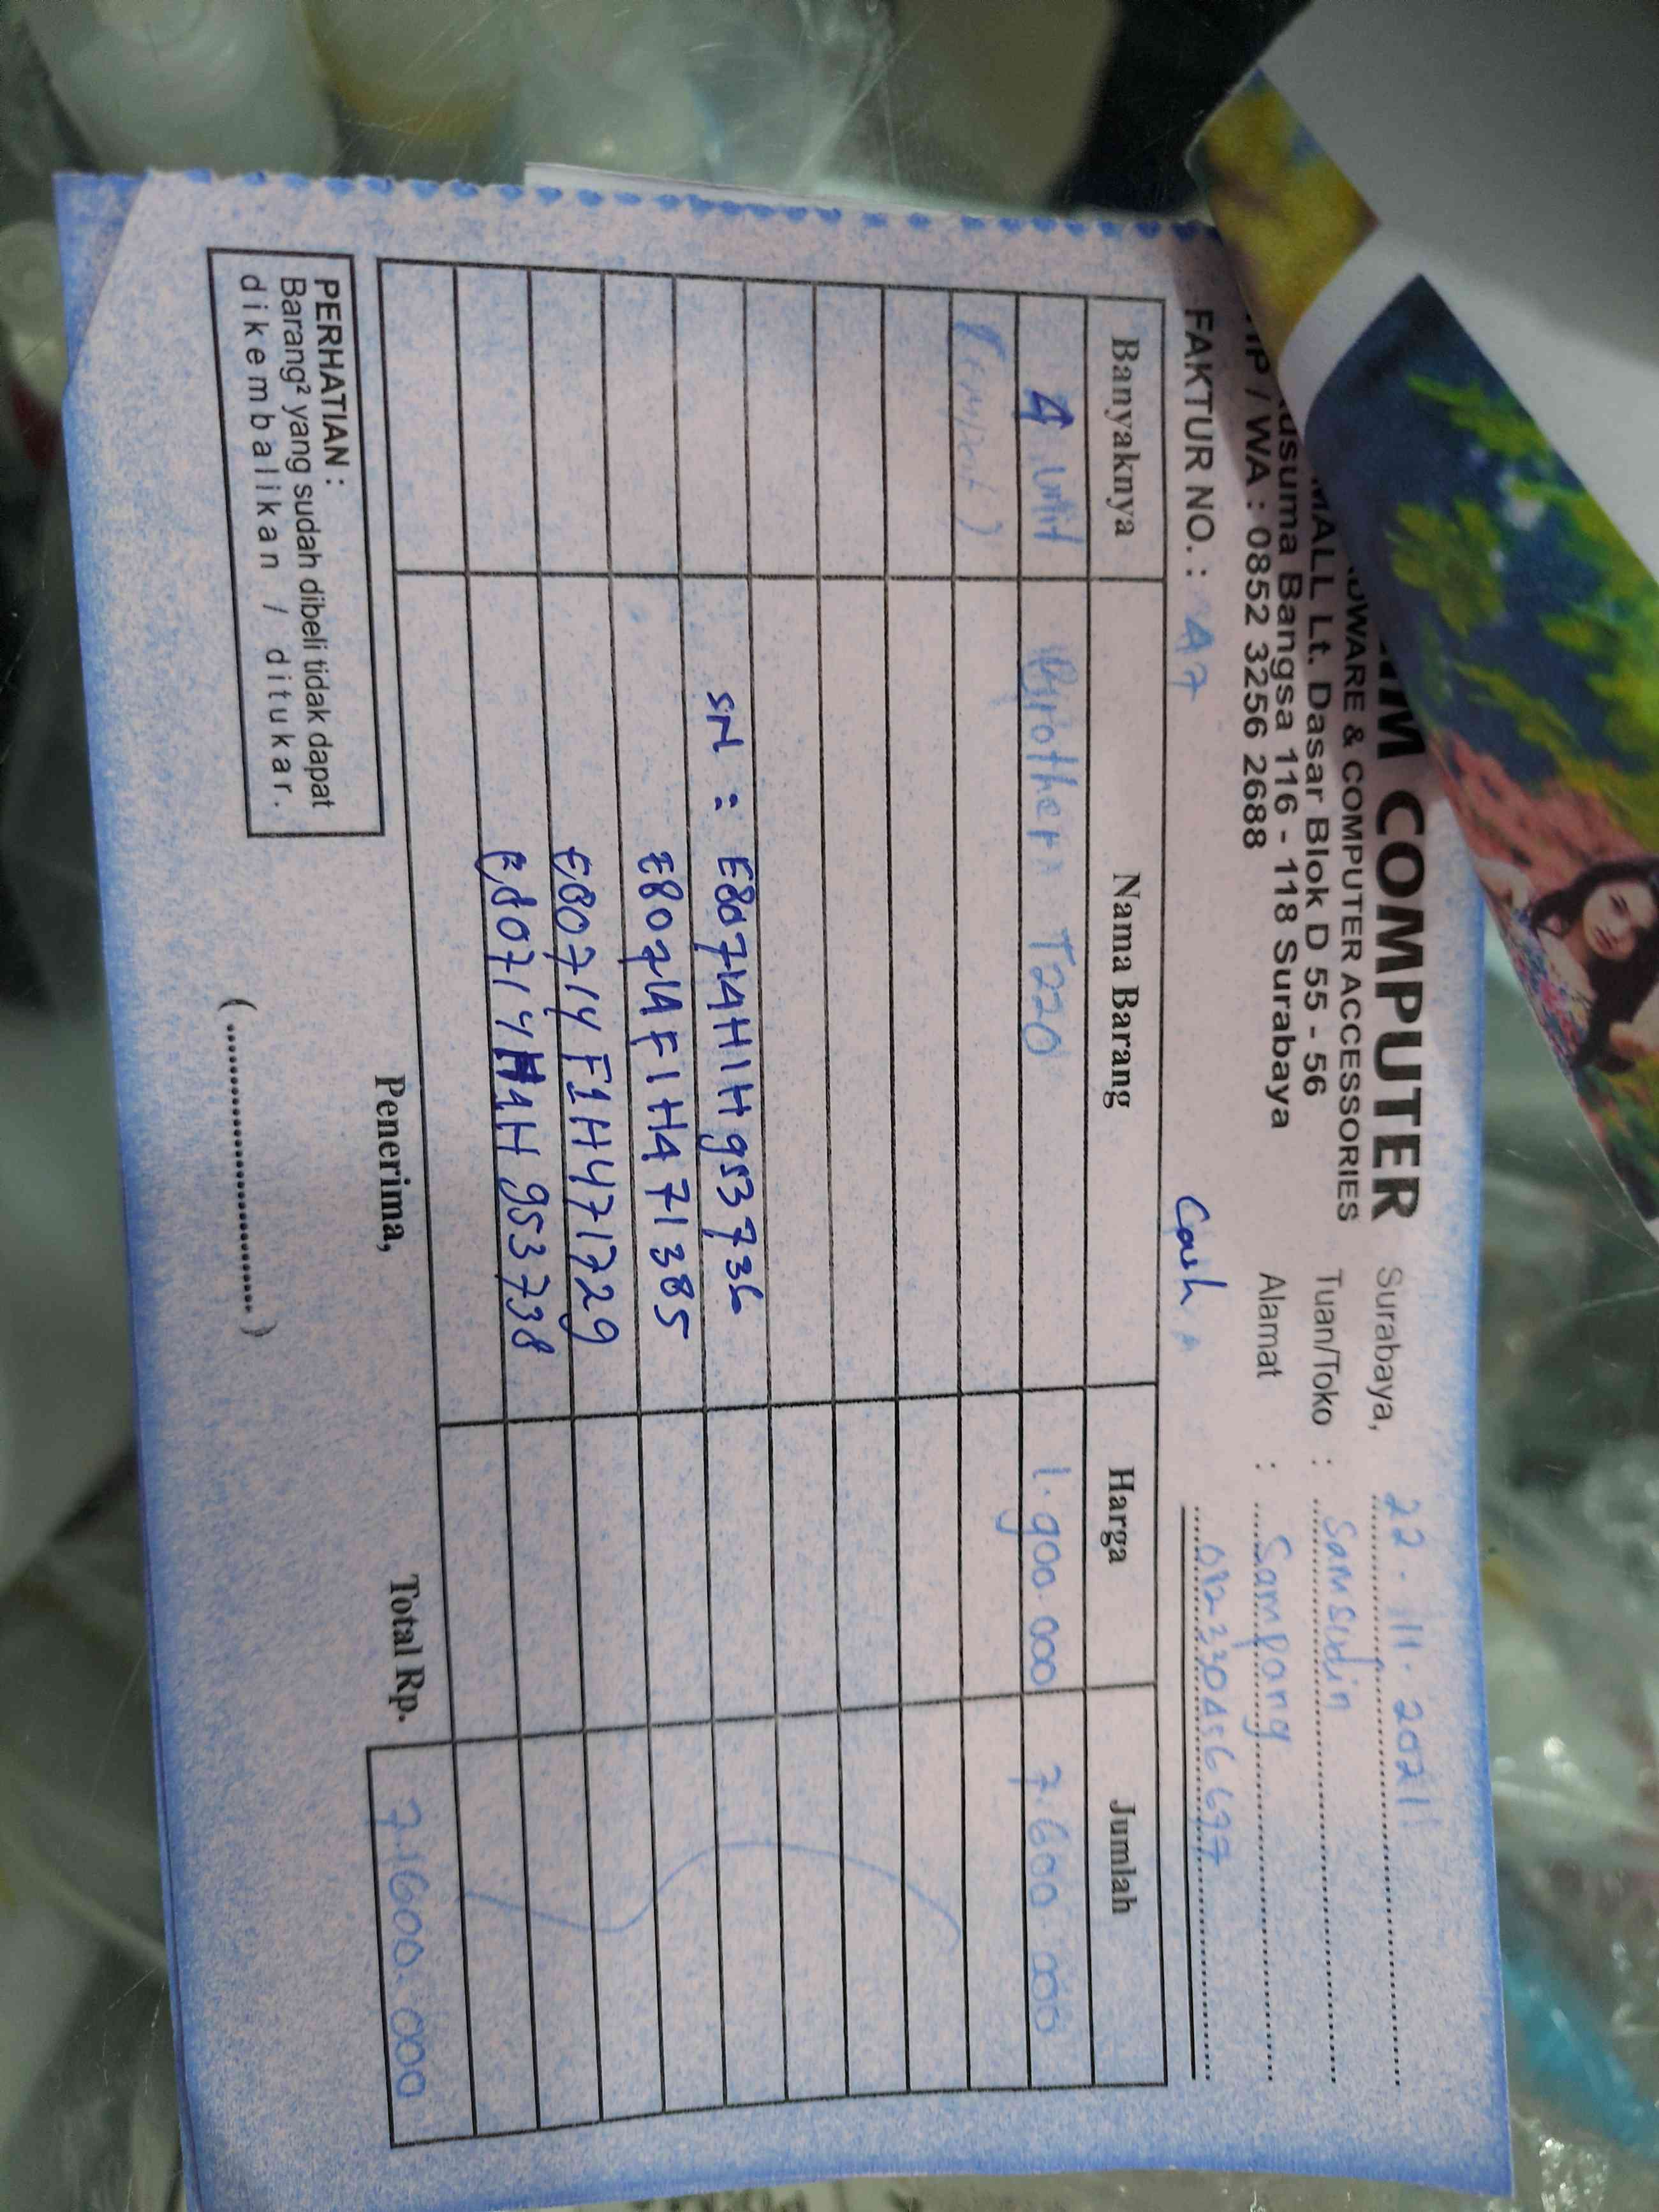 COMPUTER
& COMPUTER ACCESSORIES
MALL Lt. Dasar Blok D 55 - 56
Bangsa 116 - 118 Surabaya
HP / WA : 0852 3256 2688
Surabaya, 22 . 11 . 2021
Tuan/Toko : Samsudin
Alamat : Sampang
FAKTUR NO. : 47
Cash
Banyaknya Nama Barang Harga Jumlah
4 unit Brother T220 1.900.000 7.600.000
(empat)
SN : E80714H1H953736
E80714F1H471385
E80714F1H471729
E80714H1H953738
Penerima,
Total Rp. 7.600.000
PERHATIAN :
Barang² yang sudah dibeli tidak dapat
dikembalikan / ditukar.
(....................)